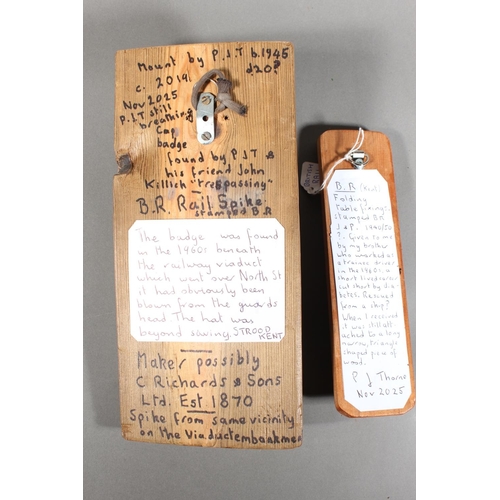 Mount by P.J.T b.1945
d20?
c. 2019.
Nov 2025
P.J.T still
breathing
Cap
badge
found by PJT &
his friend John
Killick "trespassing"
B.R. Rail Spike
stamped B.R
The badge was found
in the 1960s beneath
the railway viaduct
which went over North St
it had obviously been
blown from the guards
head The hat was
beyond saving. STROOD
KENT.
Maker possibly
C Richards & Sons
Ltd. Est 1870
Spike from same vicinity
on the Viaduct embankment
B.R (Rail)
Folding
Table fixing:
stamped B.R
? Given to me
by my brother
who worked as
a trainee driver
in the 1960s. a
short lived career
cut short by dia-
betes. Rescued
from a skip?
When I received
it was still att
ached to a long
narrow, triangle
shaped piece of
wood.
P J Thorne
Nov 2025